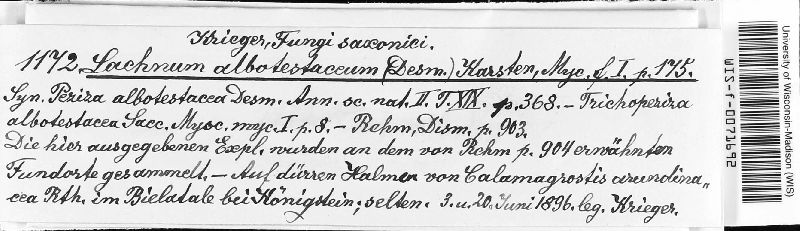 Krieger, Fungi saxonici.
1172. Lachnum albotestaceum (Desm.) Karsten, Myc. f. I. p. 175.
Syn. Peziza albotestacea Desm. Ann. sc. nat. II. T. XIX. p. 368. – Trichopeziza
albotestacea Sacc. Mysc. myc. I. p. 8. – Rehm, Discm. p. 903.
Die hier ausgegebenen Expl. wurden an dem von Rehm p. 904 erwähnten
Fundorte gesammelt. – Auf dürren Halmen von Calamagrostis arundina„
cea Rth. im Bielatale bei Königstein; selten. 3. u. 20. Juni 1896. leg. Krieger.
University of Wisconsin-Madison (WIS)
WIS-f-0071692